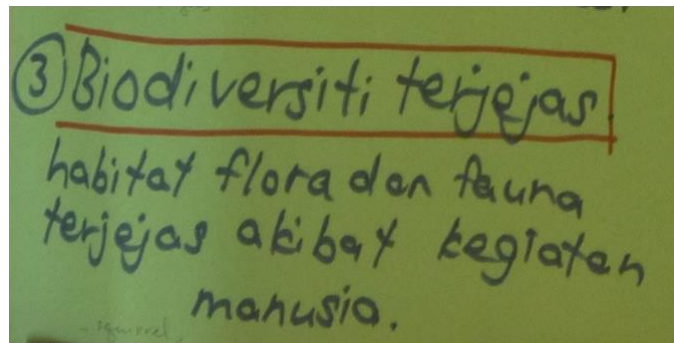 ③ Biodiversiti terjejas.
habitat flora dan fauna
terjejas akibat kegiatan
manusia.